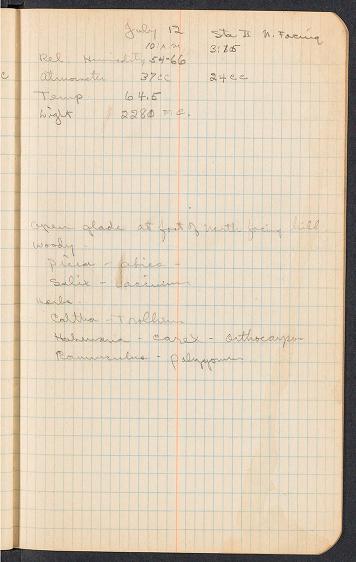 July 12 Sta II N. Facing
10 A M 3:15
Rel Humidity 54-66
c Atmometer 37cc 24cc
Temp 64.5
Light 2280
open glade at foot of north facing hill
woody -
Picea - abies -
Salix -
Herbs -
Caltha - Trollius
Habenaria - Carex - Orthocarpus
Ranunculus - Polygonum